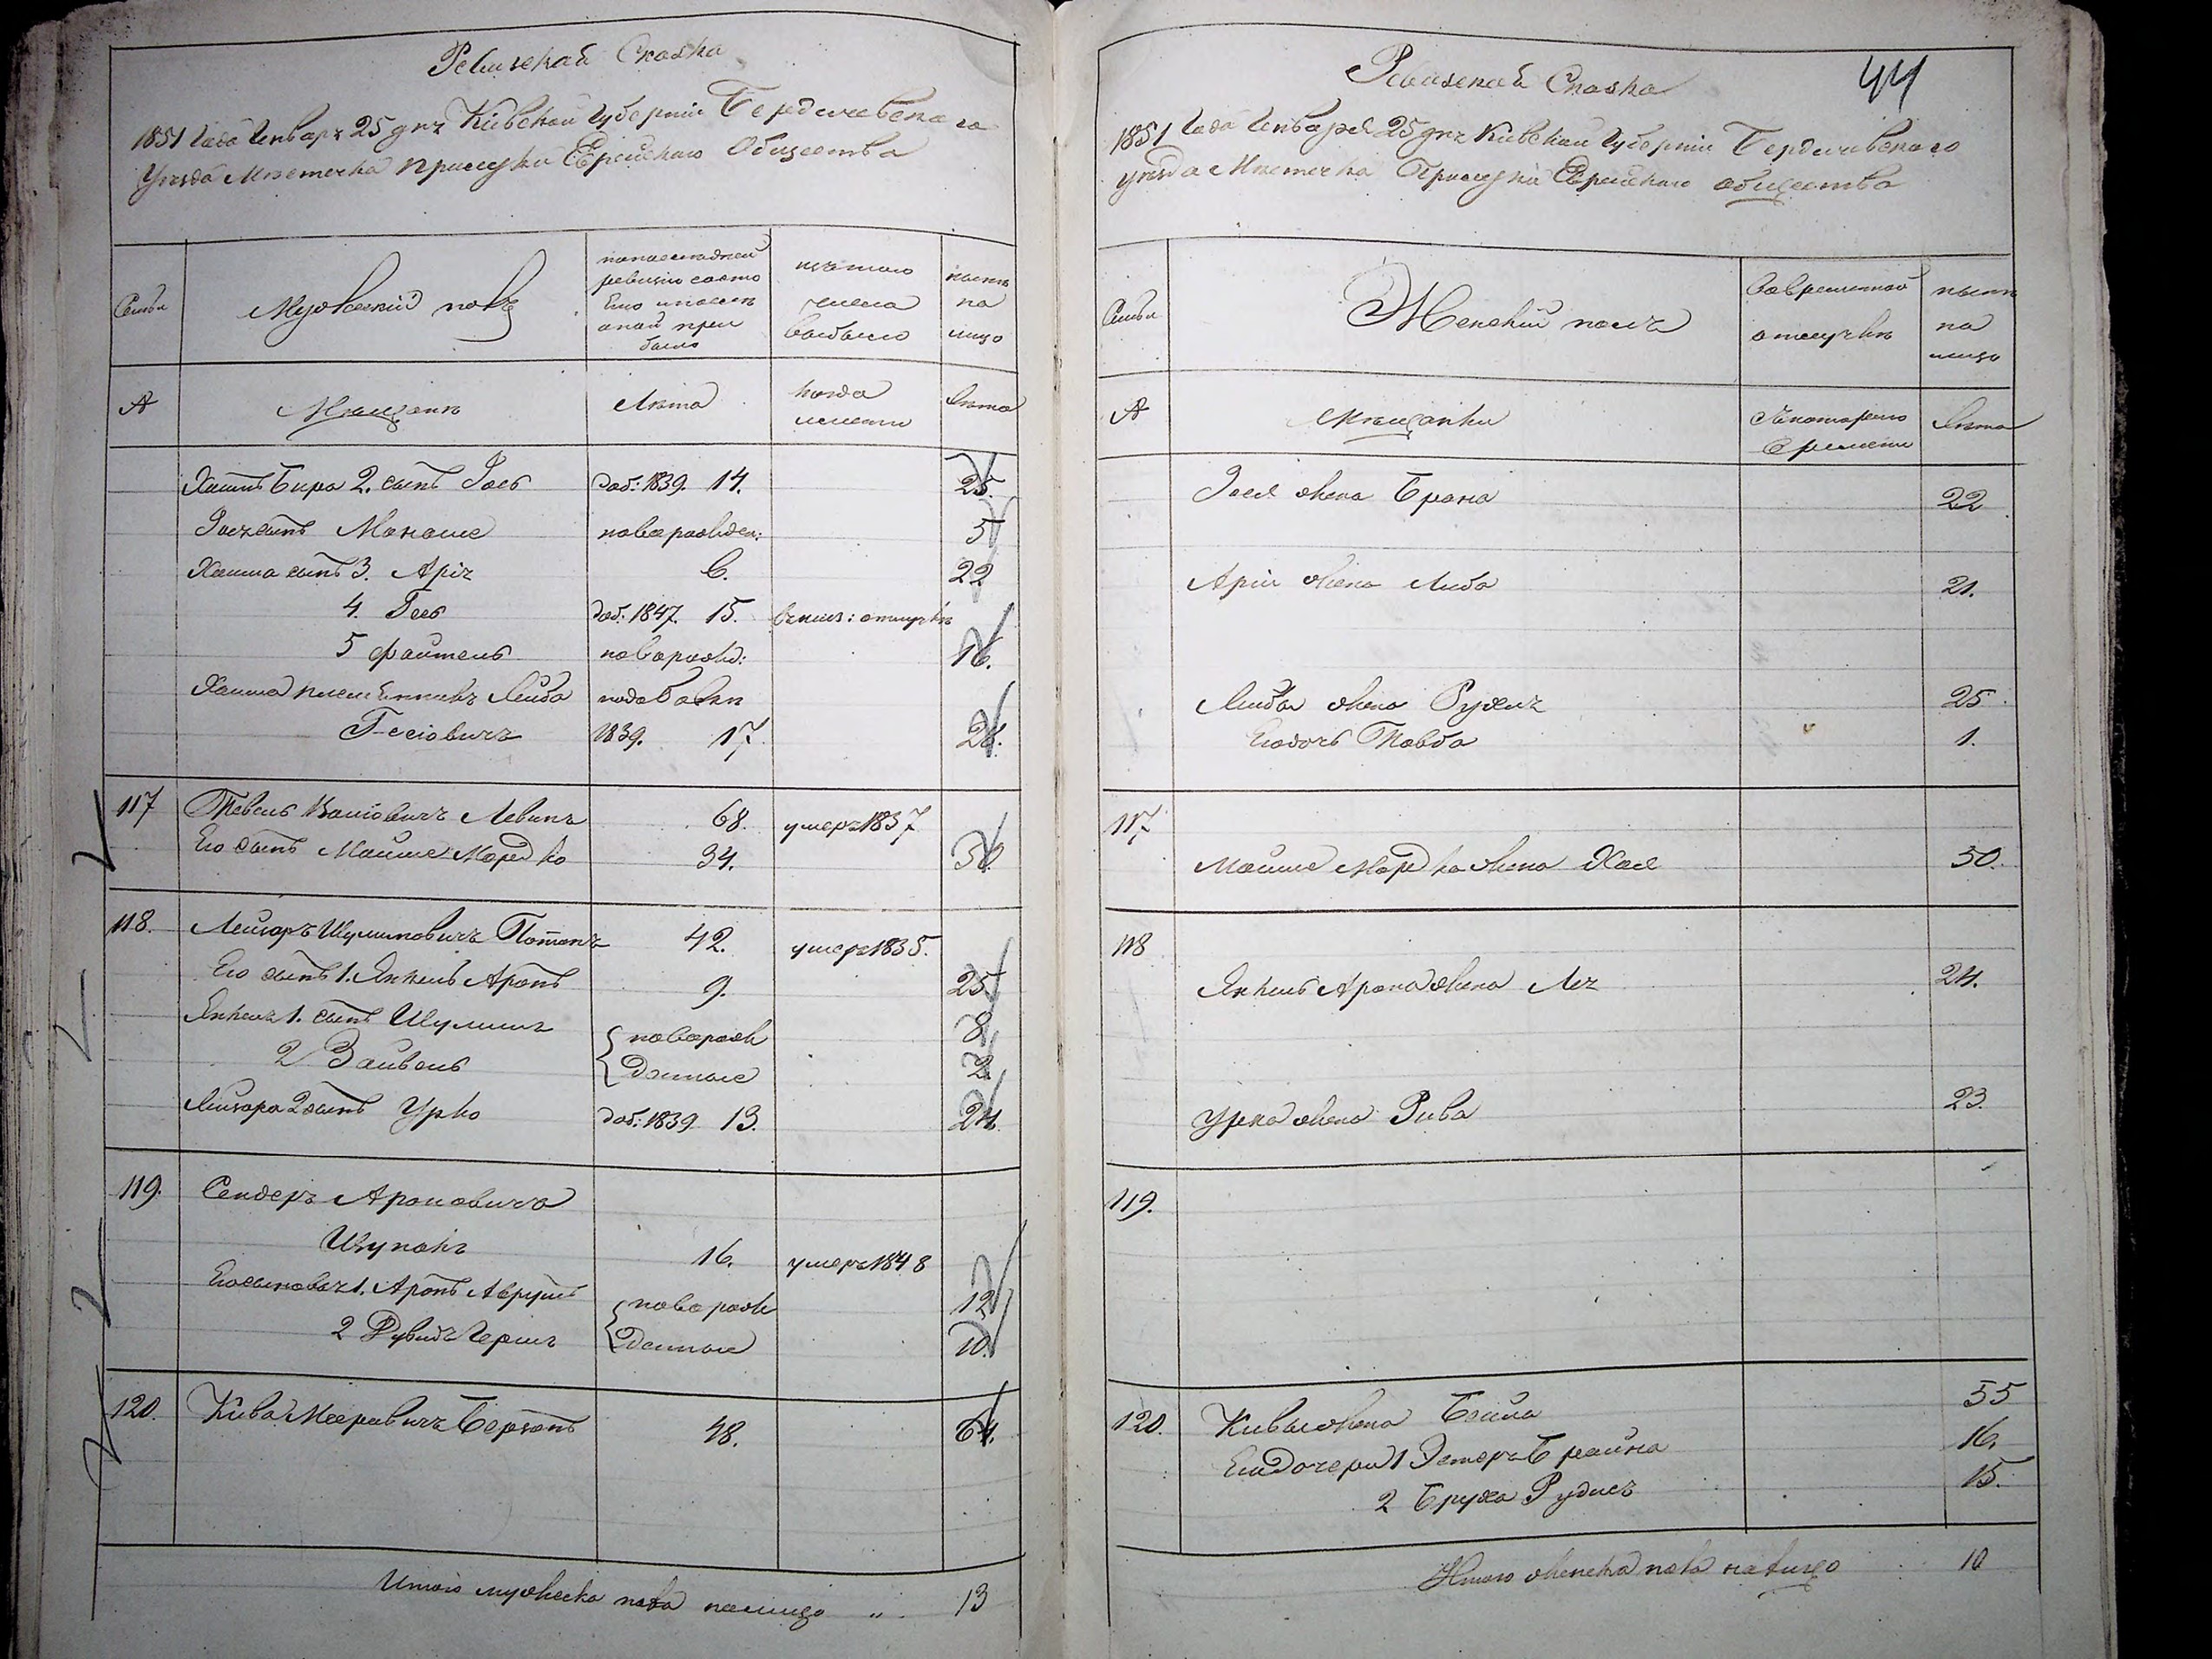 Ревизская Сказка
1851 Года Генваря 25 дня Кіевской Губерніи Бердичевскаго
Уезда Местечка Прилуки Еврейскаго Общества
Семьи
Мужескій полъ
по последней
ревизіи состо
яло и после
оной при
было
изъ того
числа
выбыло
ныне
на
лицо
№
Мещане
Лета
когда
именно
Лета
Хаима Бира 2. сынъ Іось доб: 1839. 14. 25.
Іося сынъ Манаше новорожден: 5
Хаима сынъ 3. Арія 6. 22
4. Гесь доб: 1847. 15. отлучке
5 Файтель новорожд: 16.
Хаима племянникъ Лейба подобавки
Гесіовичъ 1839. 17.
117 Тевель Левинъ 68. умеръ 1837
Его сынъ Мойше Мордко 34.
118. Лейзоръ Шулимовичъ 42. умеръ 1835.
Его сынъ 1. Янкель Аронъ 9. 25.
Янкеля 1. сынъ Шулимъ новорож 8
2 Зайвель денные 2.
Лейзора 2 сынъ Урко доб: 1839 13. 24.
119. Сендеръ Ароновичъ
Щупакъ 16. умеръ 1848
Его сыновья 1. Аронъ Аврумъ новорож 12
2 Рувинъ Гершъ денные 10.
120. Кива Мееровичъ 48. 64.
Итого мужеска пола на лицо „ 13
44
Ревизская Сказка
1851 Года Генваря 25 дня Кіевской Губерніи Бердичевскаго
уезда Местечка Прилуки Еврейскаго общества
Семьи
Женскій полъ
Во временной
отлучке
ныне
на
лицо
№
Мещанки
Съ котораго
времени
Лета
Іося жена Брана 22
Аріи жена Либа 21.
Лейбы жена Рухля 25.
Его дочь Товба 1.
117.
Мойше Мордка жена Хая 50.
118
Янкель Арона жена Лея 24.
Урка жена Рива 23.
119.
120. Кивы жена Бейла 55
Его дочери 1 Эстеръ Брайна 16.
2 Бруха Рудля 15.
Итого женска пола на лицо 10